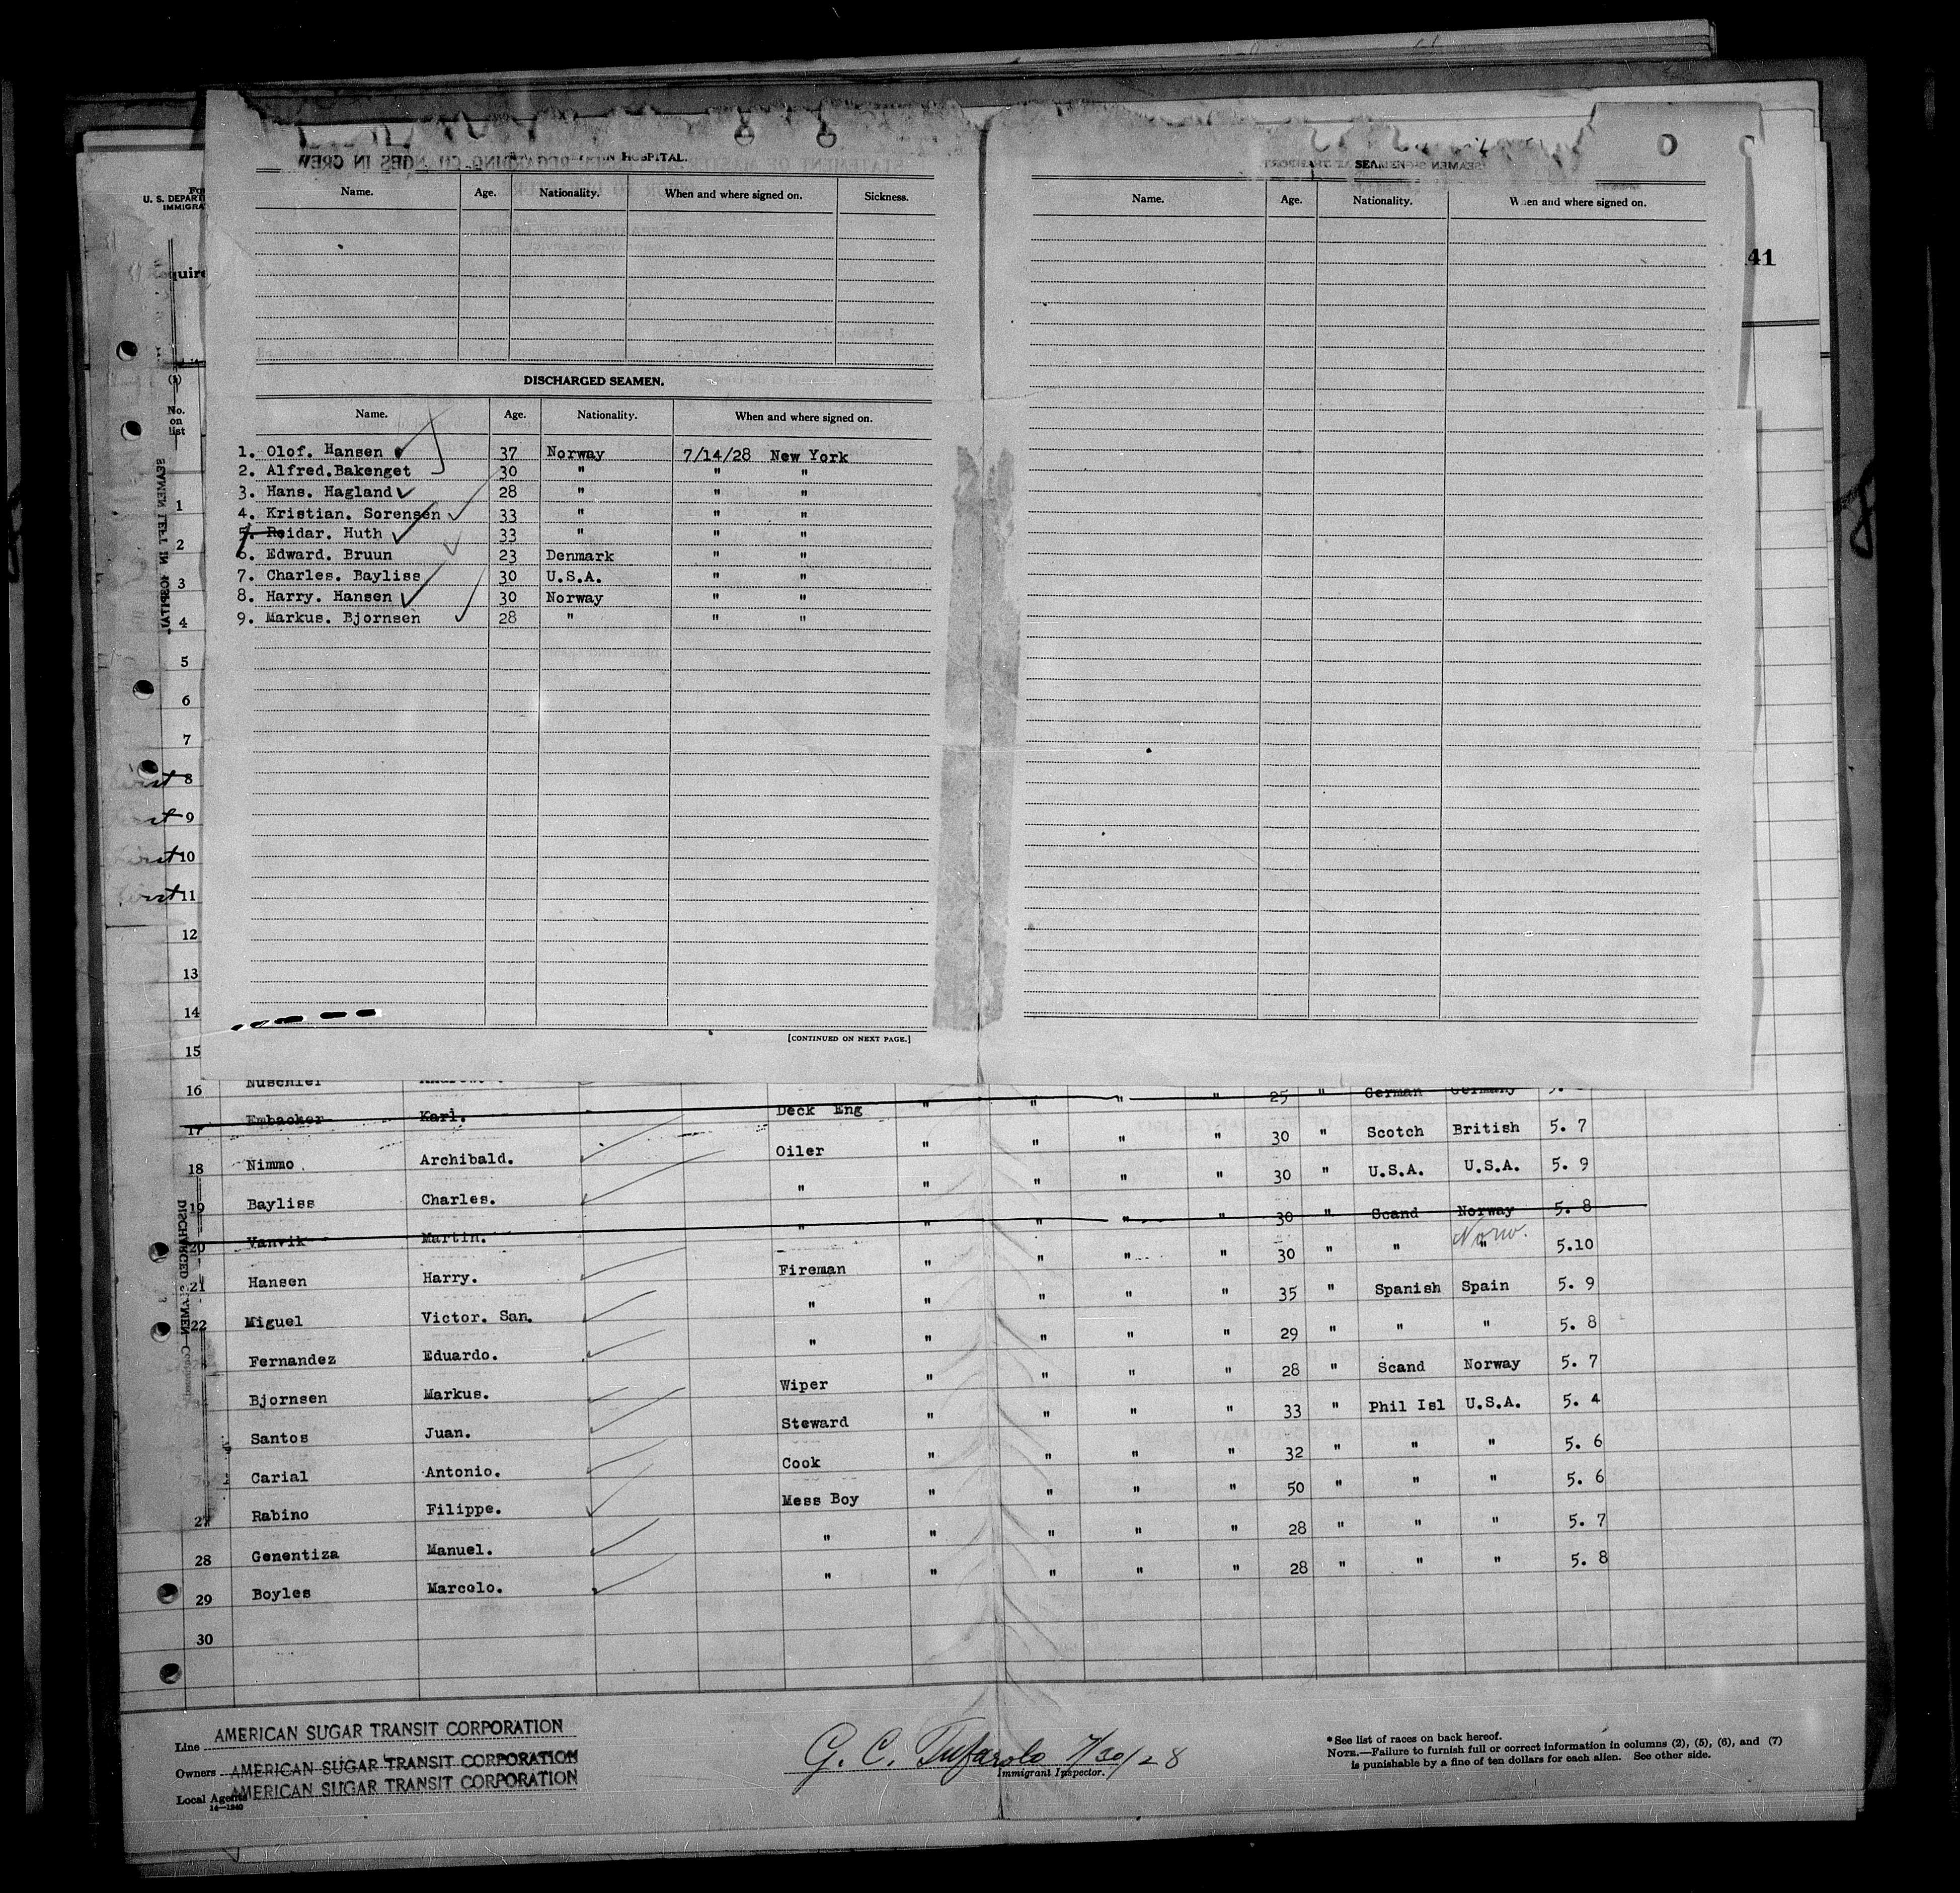 IN HOSPITAL.
Name. Age. Nationality. When and where signed on. Sickness.
DISCHARGED SEAMEN.
Name. Age. Nationality. When and where signed on.
1. Olof. Hansen 37 Norway 7/14/28 New York
2. Alfred.Bakenget 30 " " "
3. Hans. Hagland 28 " " "
4. Kristian. Sorensen 33 " " "
5. Reidar. Huth 33 " " "
6. Edward. Bruun 23 Denmark " "
7. Charles. Bayliss 30 U.S.A. " "
8. Harry. Hansen 30 Norway " "
9. Markus. Bjornsen 28 " " "
[CONTINUED ON NEXT PAGE.]
Name. Age. Nationality. When and where signed on.
41
U. S. DEPART
IMMIGRA
quire
No.
on
list
1
2
3
4
5
6
7
8
9
10
11
12
13
14
15
16 Nuschler
17 Embacker Karl. Deck Eng " " " " 25 " German Germany
18 Nimmo Archibald. Oiler " " " " 30 " Scotch British 5. 7
19 Bayliss Charles. " " " " " 30 " U.S.A. U.S.A. 5. 9
20 Vanvik Martin. " " " " " 30 " Scand Norway 5. 8
21 Hansen Harry. Fireman " " " " 30 " " " Norw. 5.10
22 Miguel Victor. San. " " " " " 35 " Spanish Spain 5. 9
Fernandez Eduardo. " " " " " 29 " " " 5. 8
Bjornsen Markus. Wiper " " " " 28 " Scand Norway 5. 7
Santos Juan. Steward " " " " 33 " Phil Isl U.S.A. 5. 4
Carial Antonio. Cook " " " " 32 " " " 5. 6
27 Rabino Filippe. Mess Boy " " " " 50 " " " 5. 6
28 Genentiza Manuel. " " " " " 28 " " " 5. 7
29 Boyles Marcolo. " " " " " 28 " " " 5. 8
30
Line AMERICAN SUGAR TRANSIT CORPORATION
Owners AMERICAN SUGAR TRANSIT CORPORATION
Local Agents AMERICAN SUGAR TRANSIT CORPORATION
14—1240
G. C. Tufarolo 7/30/28
Immigrant Inspector.
* See list of races on back hereof.
NOTE.—Failure to furnish full or correct information in columns (2), (5), (6), and (7)
is punishable by a fine of ten dollars for each alien. See other side.